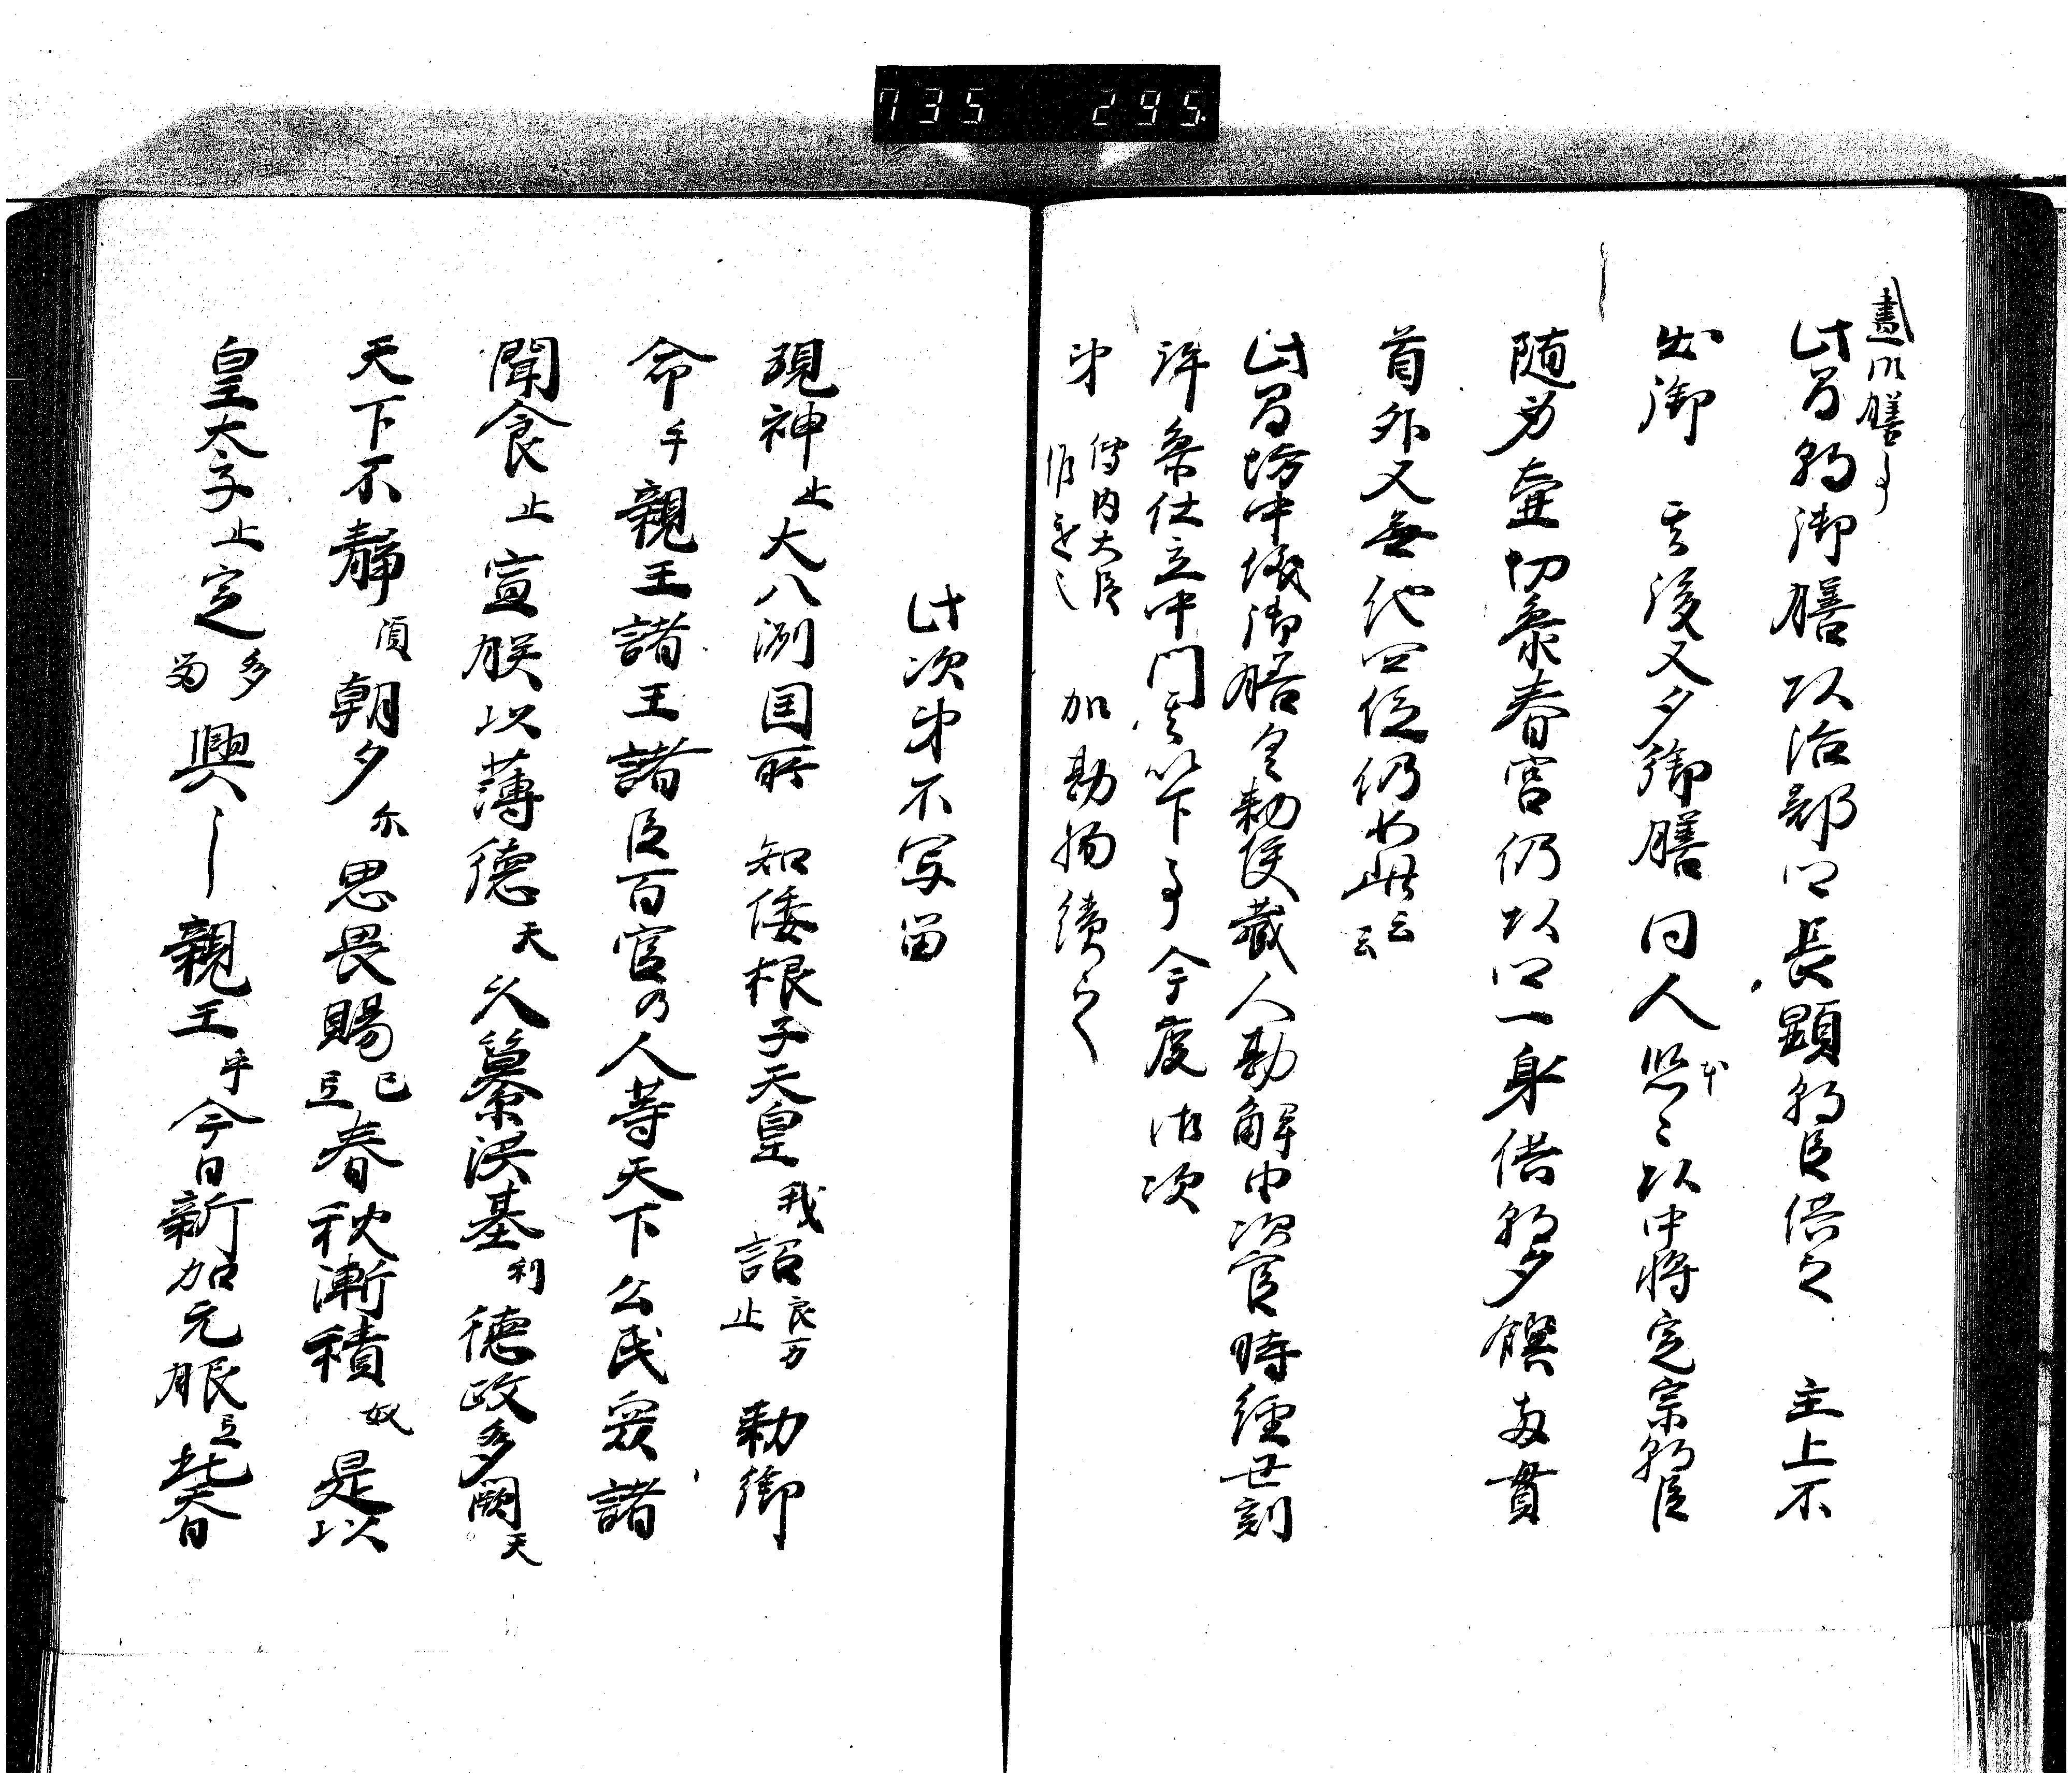 735 295.
晝御膳事
此間朝御膳以治部卿長顕朝臣供之 主上不
出御 其後又夕御膳同人 以中将定宗朝臣
随身壺切参春宮仍以卿一身供朝夕饌両貫
首外又無他四位仍如此云云
此間坊中儀御膳 勅使蔵人勘解由次官時経世刻
祥參仕立中門其以下事今度御次
第 傅内大臣作進之 加勘物續之
此次第不写留
現神止大八洲国所知倭根子天皇我詔良万止勅御
命乎親王諸王諸臣百官乃人等天下公民衆諸
聞食止宣朕以薄徳天久纂洪基利徳政多闕天
天下不静須朝夕尓思畏賜己止春秋漸積奴是以
皇太子止定多留興〻親王乎今日新加元服此春